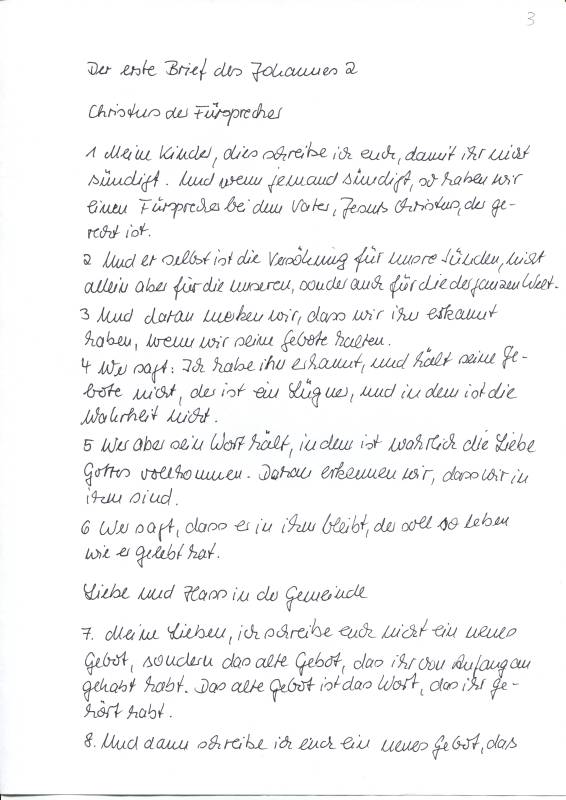 3
Der erste Brief des Johannes 2
Christus der Fürsprecher
1 Meine Kinder, dies schreibe ich euch, damit ihr nicht
sündigt. Und wenn jemand sündigt, so haben wir
einen Fürsprecher bei dem Vater, Jesus Christus, der ge-
recht ist.
2 Und er selbst ist die Versöhnung für unsre Sünden, nicht
allein aber für die unseren, sonder auch für die der ganzen Welt.
3 Und daran merken wir, dass wir ihn erkannt
haben, wenn wir seine Gebote halten.
4 Wer sagt: Ich habe ihn erkannt, und hält seine Ge-
bote nicht, der ist ein Lügner, und in dem ist die
Wahrheit nicht.
5 Wer aber sein Wort hält, in dem ist wahrlich die Liebe
Gottes vollkommen. Daran erkennen wir, dass wir in
ihm sind.
6 Wer sagt, dass er in ihm bleibt, der soll so leben
wie er gelebt hat.
Liebe und Hass in der Gemeinde
7. Meine Lieben, ich schreibe euch nicht ein neues
Gebot, sondern das alte Gebot, das ihr von Anfang an
gehabt habt. Das alte Gebot ist das Wort, das ihr ge-
hört habt.
8. Und dann schreibe ich euch ein neues Gebot, das